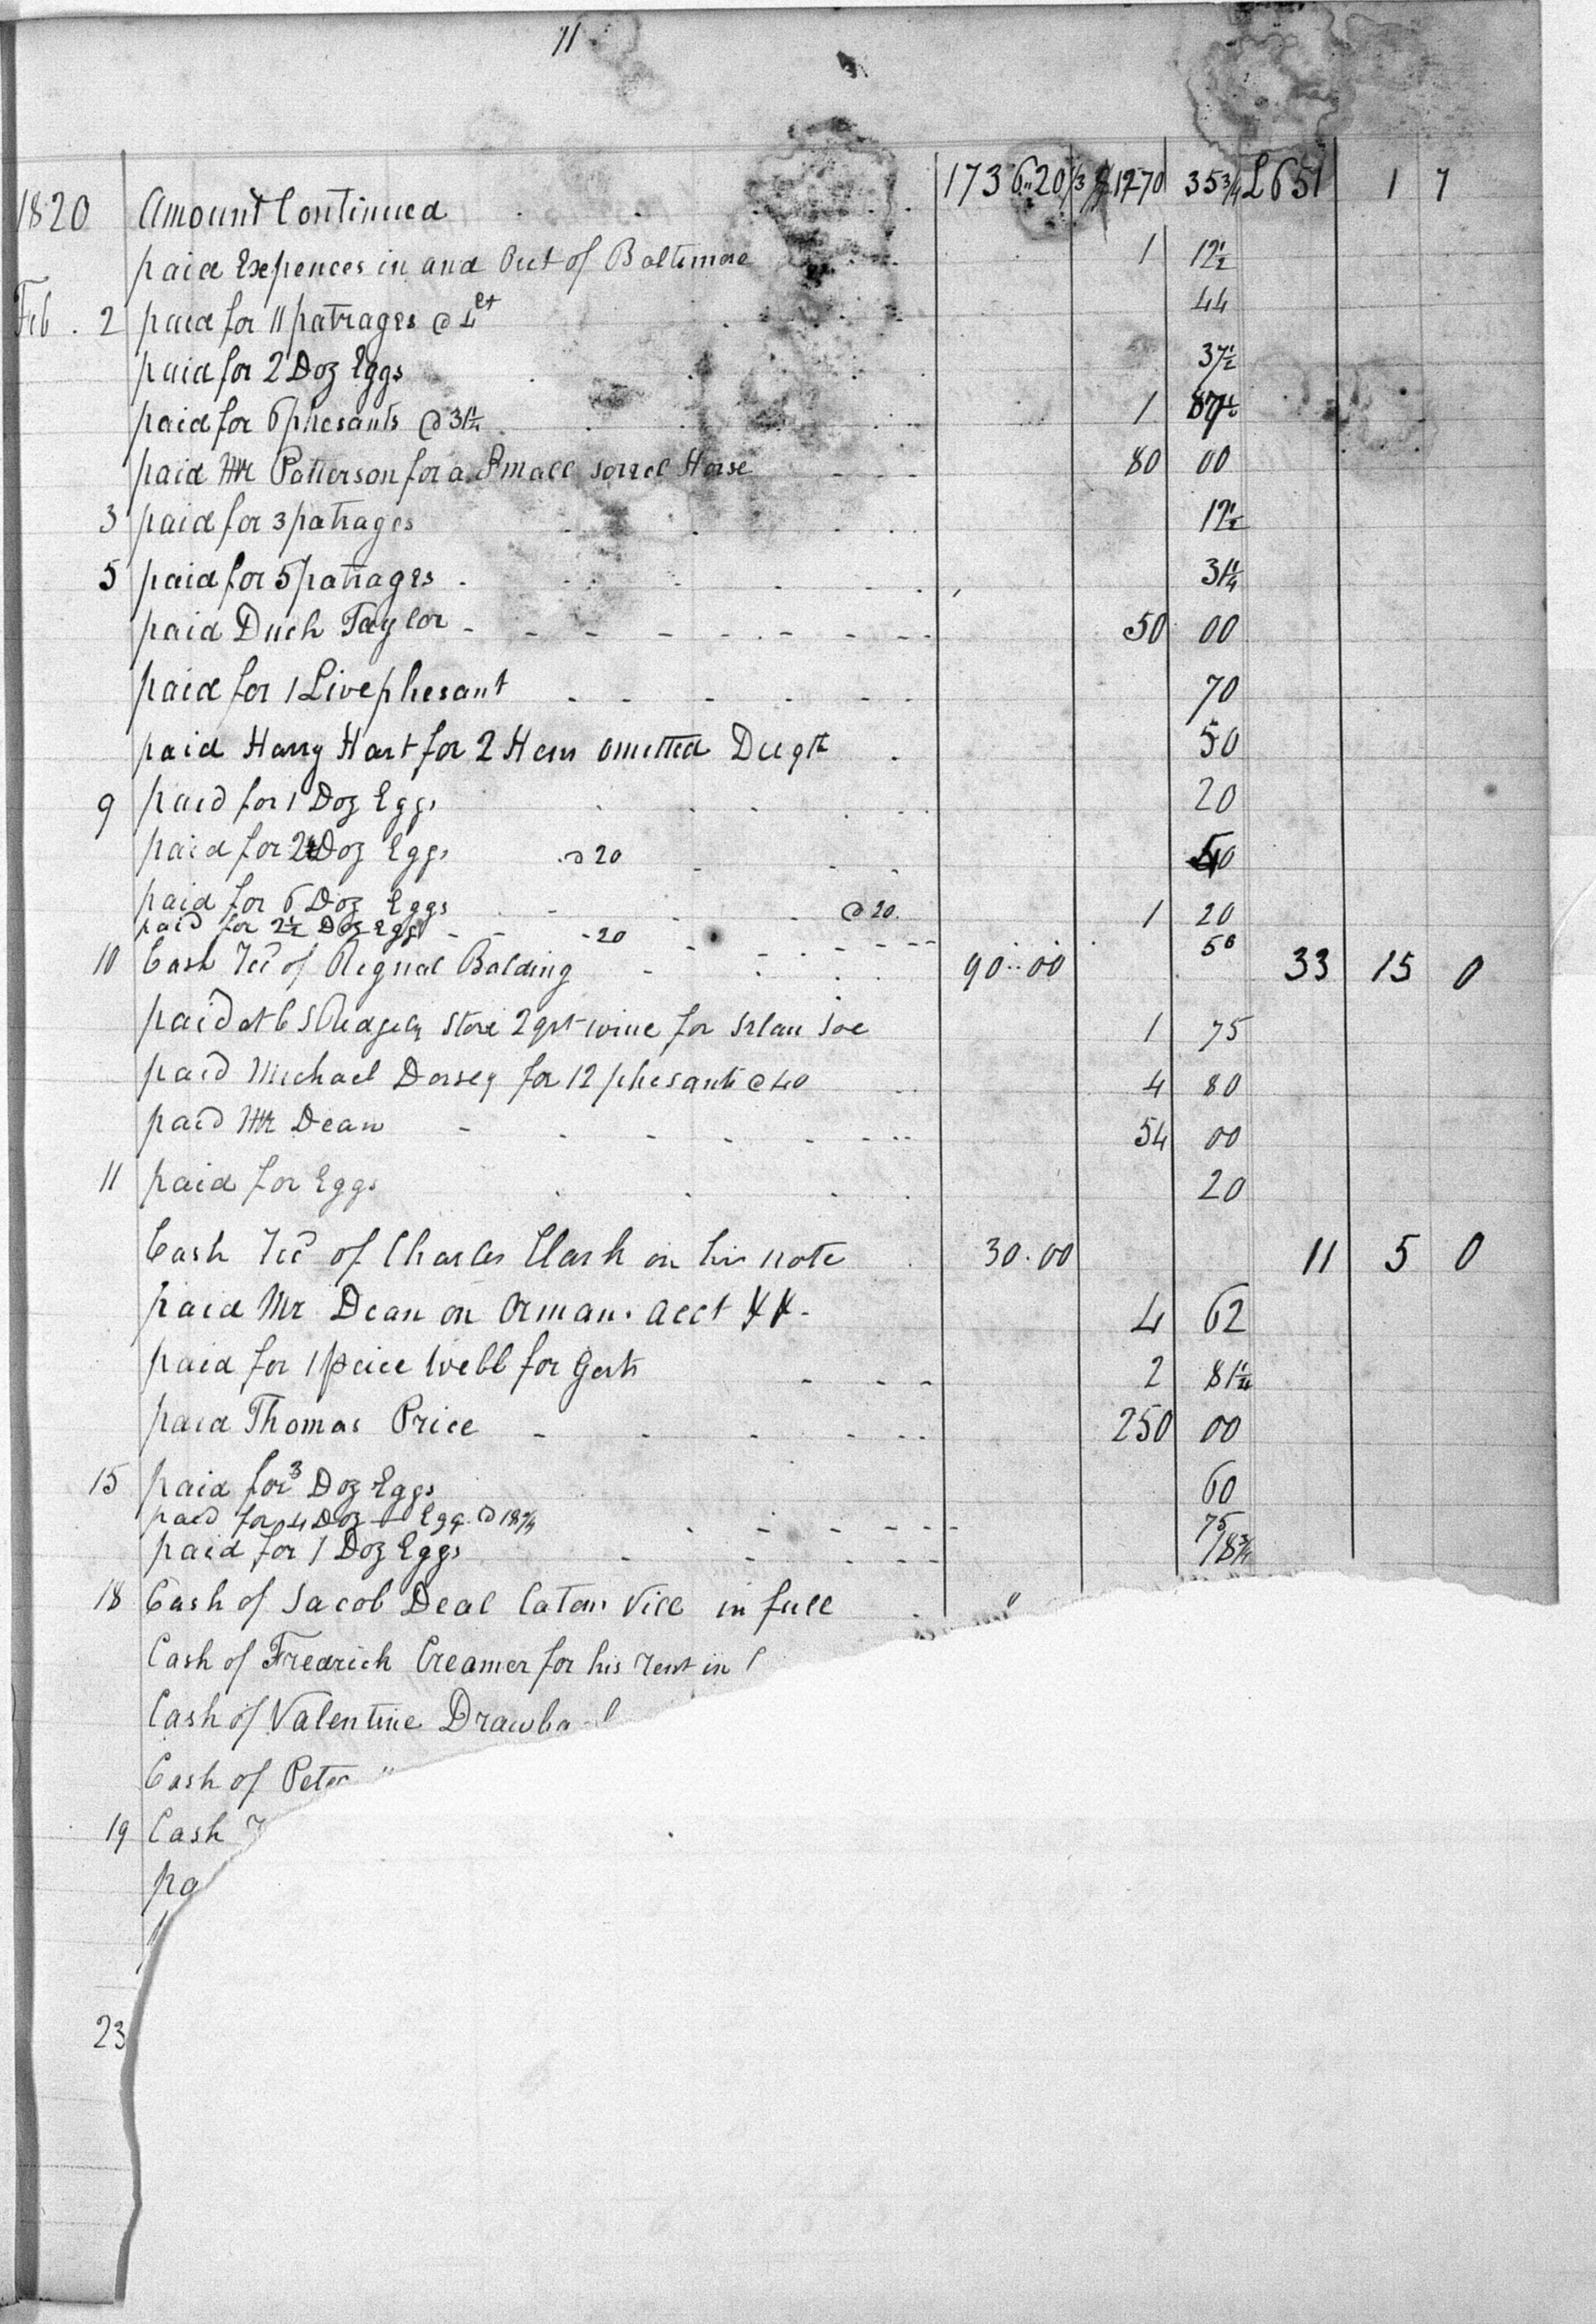 11
1820 Amount Continued 1736..20 1/3 $1270 35 3/4 £651 1 7
paid Expences in and Out of Baltimore 1 12 1/2
Feb. 2 paid for 11 patrages @ 4 ct 44
paid for 2 Doz Eggs 37 1/2
paid for 6 phesants @ 31 1/4 1 87 1/2
paid Mr Patterson for a Small sorrel Horse 80 00
3 paid for 3 patrages 12 1/2
5 paid for 5 patrages 31 1/4
paid Duch Taylor 50 00
paid for 1 Live phesant 70
paid Harry Hart for 2 Hens omitted 50
9 paid for 1 Doz Eggs 20
paid for 2 Doz Eggs @ 20 40
paid for 6 Doz Eggs @ 20 1 20
paid for 2 1/2 Doz Eggs 20 50
10 Cash Recd of Regnal Balding 90..00 33 15 0
paid at store 2 qrt wine for Joe 1 75
paid Michael Dorsey for 12 phesants @ 40 4 80
paid Mr Dean 54 00
11 paid for Eggs 20
Cash Recd of Charles Clark on his note 30.00 11 5 0
paid Mr Dean on acct 4 62
paid for 1 peice Webb for Gerts 2 81 1/4
paid Thomas Price 250 00
15 paid for 3 Doz Eggs 60
paid for 4 Doz Egg @ 18 3/4 75
paid for 1 Doz Eggs 18 3/4
18 Cash of Jacob Deal Caton Vill in full
Cash of Fredrich Creamer for his rent in
Cash of Valentine Drawba
Cash of Peter
19 Cash
pa
23